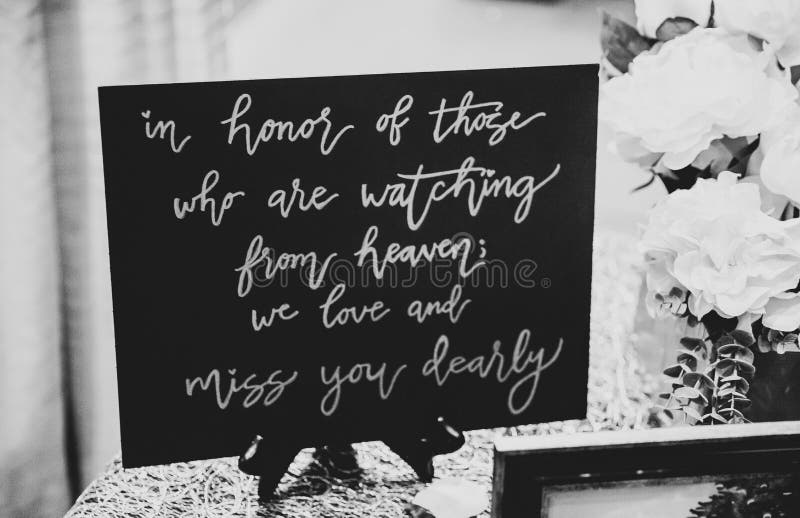 in honor of those
who are watching
from heaven;
we love and
miss you dearly
dreamstime